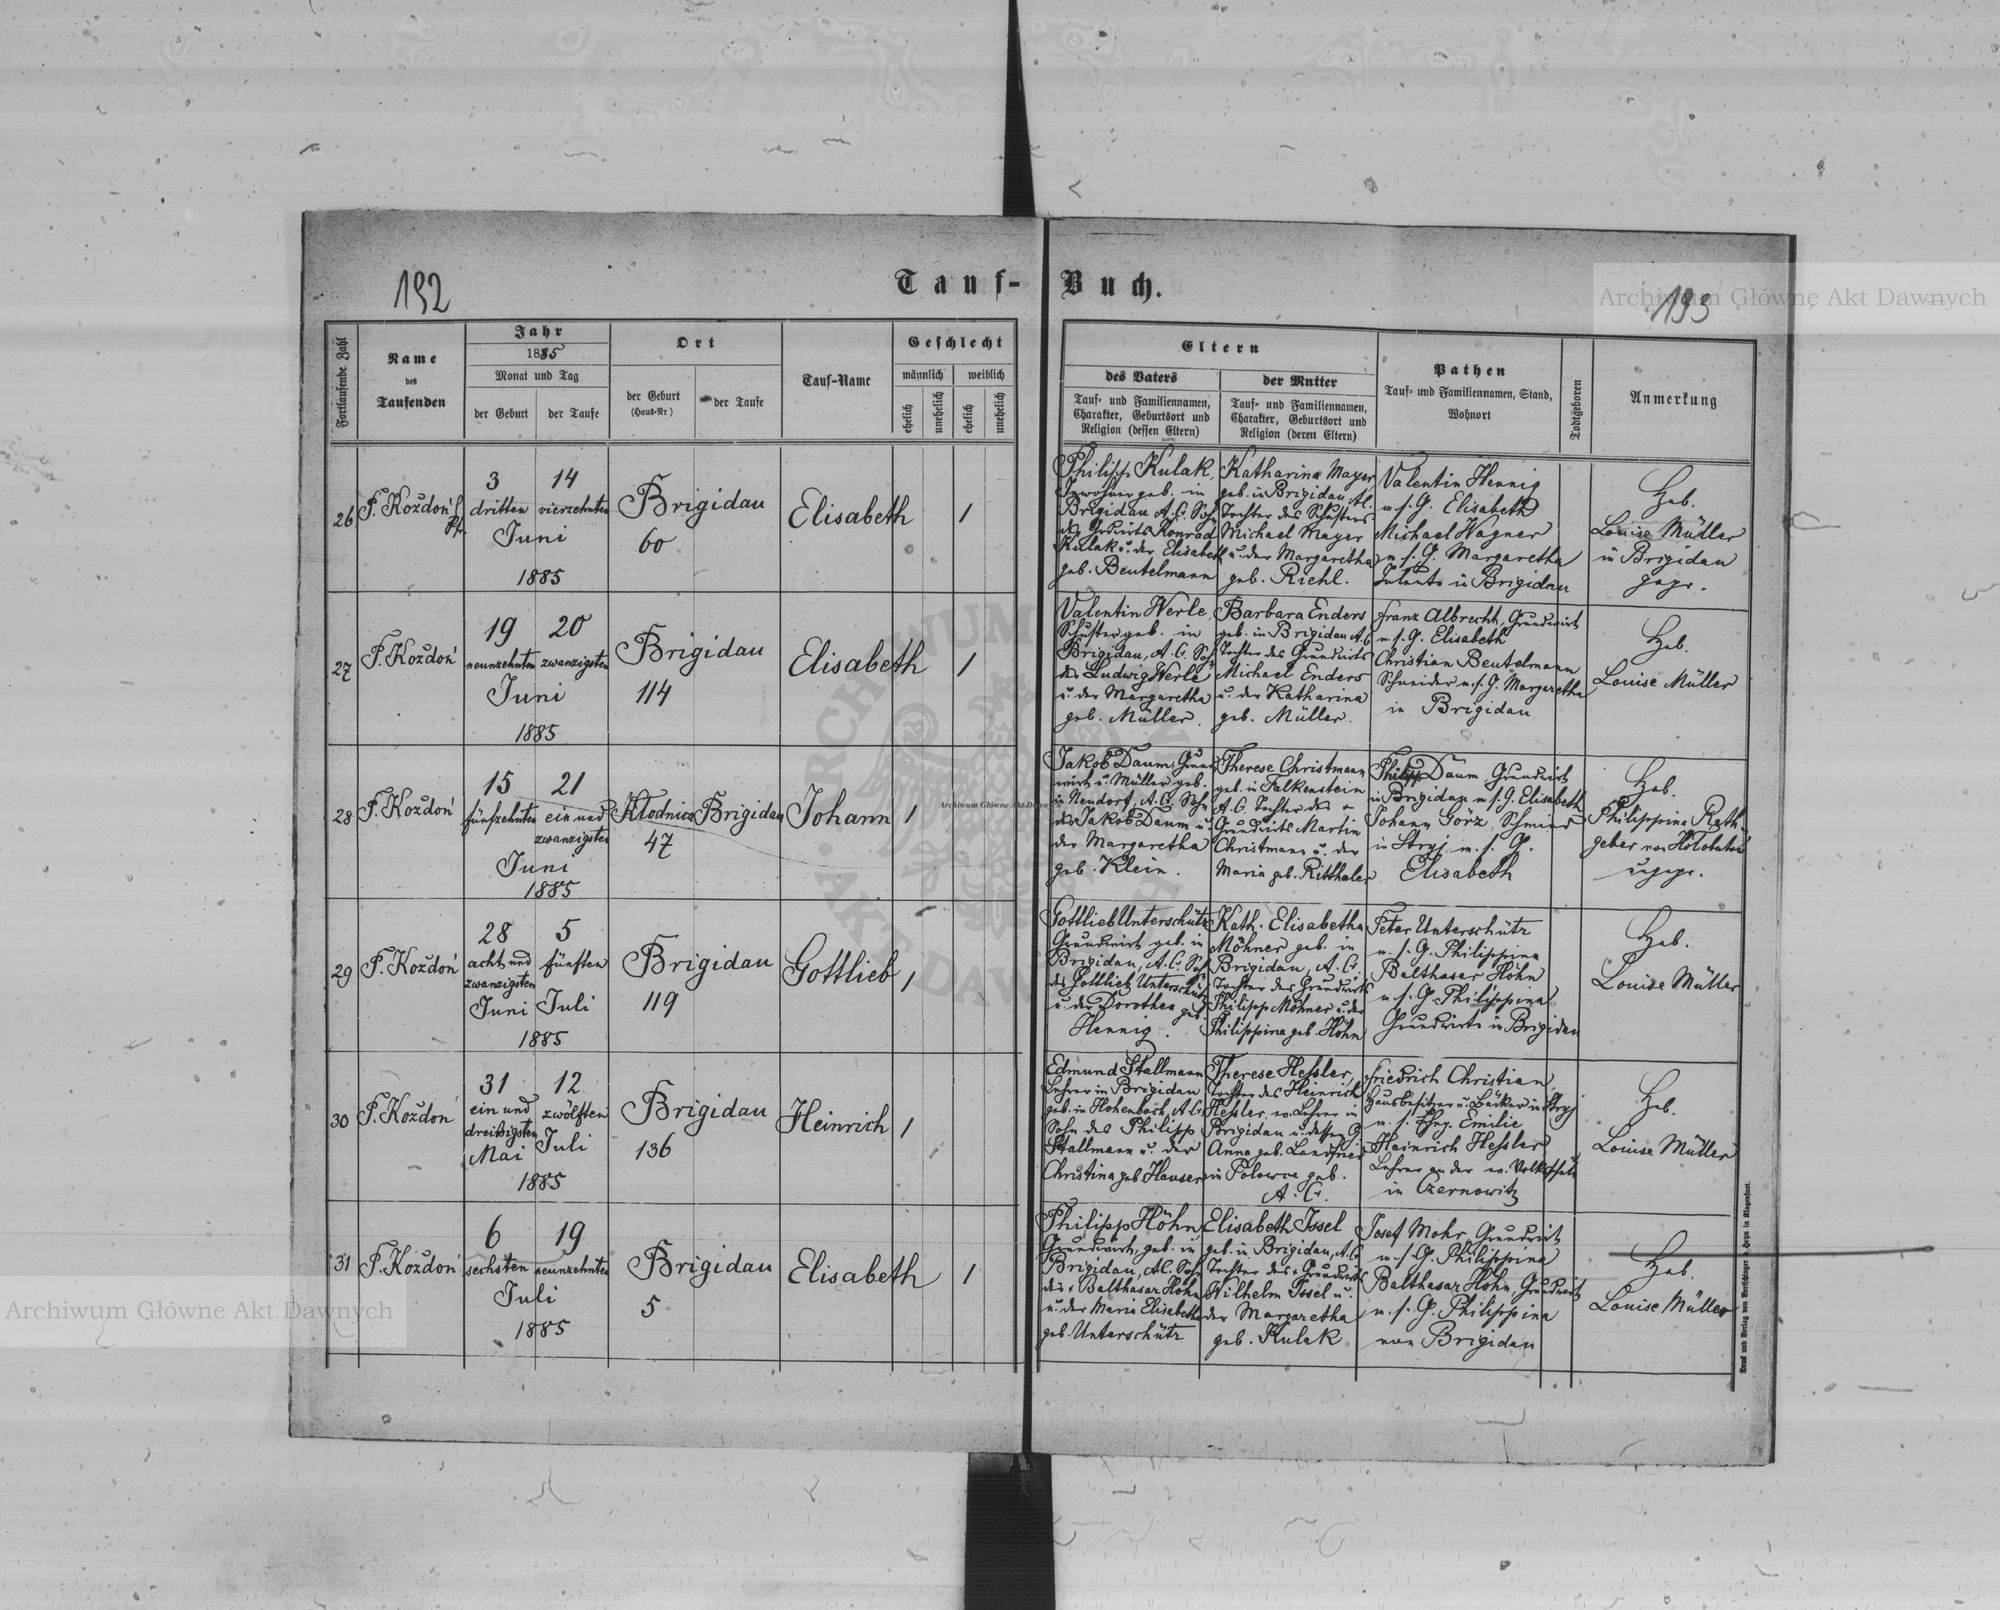 192
Tauf-
Buch.
193
Archiwum Główne Akt Dawnych
Fortlaufende Zahl
Name
des
Taufenden
Jahr
1885
Monat und Tag
der Geburt
der Taufe
Ort
der Geburt
(Haus-Nr.)
der Taufe
Tauf-Name
Geschlecht
männlich
weiblich
ehelich
unehelich
ehelich
unehelich
Eltern
des Vaters
Tauf- und Familiennamen,
Charakter, Geburtsort und
Religion (dessen Eltern)
der Mutter
Tauf- und Familiennamen,
Charakter, Geburtsort und
Religion (deren Eltern)
Pathen
Tauf- und Familiennamen, Stand,
Wohnort
Todtgeboren
Anmerkung
26
F. Kozdoń
Pf.
3
dritten
14
vierzehnten
Juni
1885
Brigidau
60
Elisabeth
1
Philipp Kulak,
Inwohner geb. in
Brigidau A.C. Sohn
des Grdwirts Konrad
Kulak u. der Elisabeth
geb. Beutelmann
Katharina Mayer
geb. in Brigidau, A.C.
Tochter des Schusters
Michael Mayer
u. der Margaretha
geb. Riehl.
Valentin Hennig
m. s. G. Elisabeth
Michael Wagner
m. s. G. Margaretha
in Brigidau
Heb.
Louise Müller
in Brigidau
gepr.
27
F. Kozdoń
19
neunzehnten
20
zwanzigsten
Juni
1885
Brigidau
114
Elisabeth
1
Valentin Werle
Schuster geb. in
Brigidau, A.C. Sohn
des Ludwig Werle
u. der Margaretha
geb. Müller.
Barbara Enders
geb. in Brigidau A.C.
Tochter des Grundwirts
Michael Enders
u. der Katharina
geb. Müller.
Franz Albrecht, Grundwirt
m. s. G. Elisabeth
Christian Beutelmann
Schneider m. s. G. Margaretha
in Brigidau
Heb.
Louise Müller
28
F. Kozdoń
15
fünfzehnten
21
ein und
zwanzigsten
Juni
1885
Klodnica
47
Brigidau
Johann
1
Jakob Daum, Grund
wirt u. Müller geb.
in Neudorf, A.C. Sohn
des Jakob Daum u.
der Margaretha
geb. Klein.
Therese Christmann
geb. in Falkenstein
A.C. Tochter des
Grundwirts Martin
Christmann u. der
Maria geb. Ritthaler
Philipp Daum, Grundwirt
in Brigidau m. s. G. Elisabeth
Johann Görz, Schmied
in Stryj m. s. G.
Elisabeth
Heb.
Philippina Rath-
geber von
ungepr.
29
F. Kozdoń
28
acht und
zwanzigsten
Juni
5
fünften
Juli
1885
Brigidau
119
Gottlieb
1
Gottlieb Unterschütz
Grundwirt geb. in
Brigidau, A.C. Sohn
des Gottlieb Unterschütz
u. der Dorothea geb.
Hennig.
Kath. Elisabetha
Möhner geb. in
Brigidau, A.C.
Tochter des Grundwirts
Philipp Möhner u. der
Philippina geb. Höhn
Peter Unterschütz
m. s. G. Philippina
Balthasar Höhn
m. s. G. Philippina
Grundwirte in Brigidau
Heb.
Louise Müller
30
F. Kozdoń
31
ein und
dreißigsten
Mai
12
zwölften
Juli
1885
Brigidau
136
Heinrich
1
Edmund Stallmann
Lehrer in Brigidau
geb. in Hohenbach, A.C.
Sohn des Philipp
Stallmann u. der
Christina geb. Hauser
Therese Hessler,
Tochter des Heinrich
Hessler, ev. Lehrer in
Brigidau u. dessen G.
Anna geb. Landfried
in Polowce geb.
A.C.
Friedrich Christian,
Hausbesitzer u. Bäcker in Stryj
m. s. Emilie
Heinrich Hessler
Lehrer an der ev. Volksschule
in Czernowitz
Heb.
Louise Müller
31
F. Kozdoń
6
sechsten
19
neunzehnten
Juli
1885
Brigidau
5
Elisabeth
1
Philipp Höhn
Grundwirt, geb. in
Brigidau, A.C. Sohn
des Balthasar Höhn
u. der Maria Elisabetha
geb. Unterschütz
Elisabeth Issel
geb. in Brigidau, A.C.
Tochter des Grundwirts
Wilhelm Issel u.
der Margaretha
geb. Kulak
Josef Mohr, Grundwirt
m. s. G. Philippina
Balthasar Höhn, Grundwirt
m. s. G. Philippina
von Brigidau
Heb.
Louise Müller
Archiwum Główne Akt Dawnych
Archiwum Główne Akt Dawnych